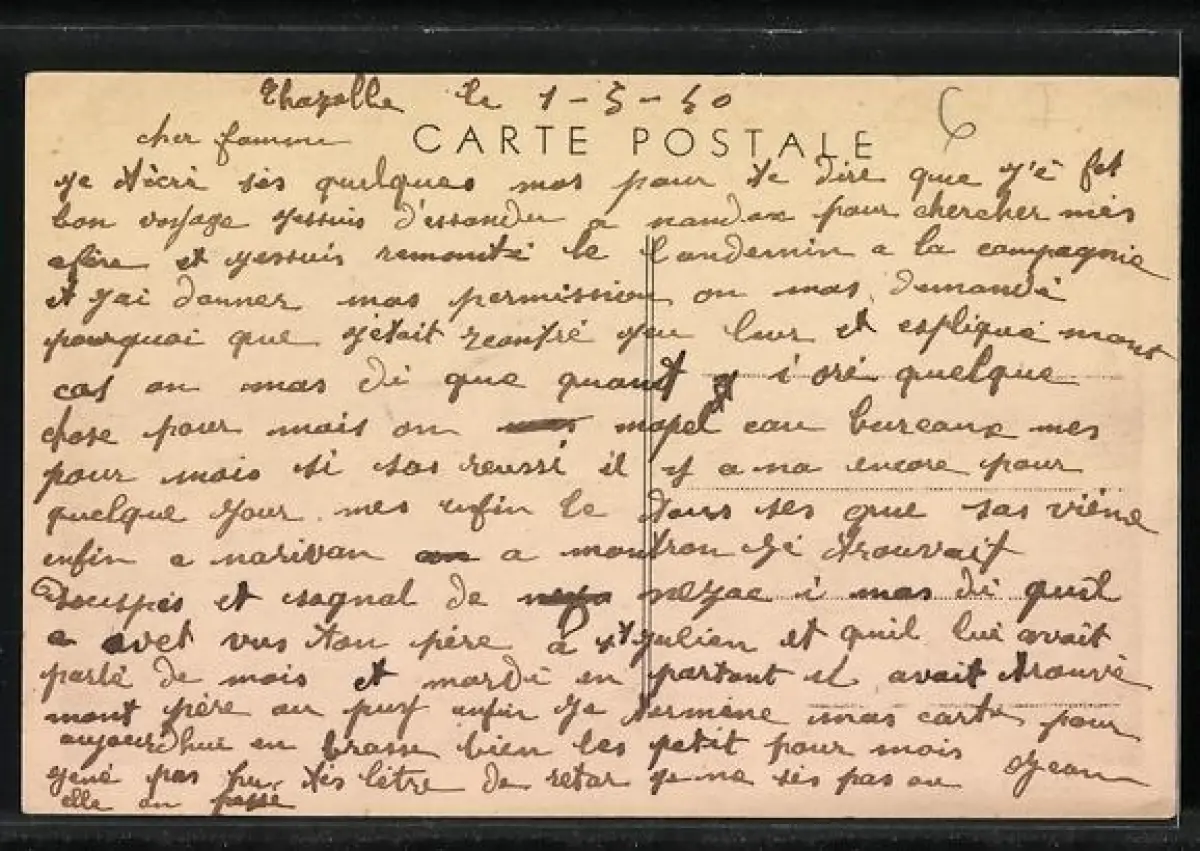 le 1-5-40
6
cher famme
CARTE POSTALE
je técri sès quelques mos pour te dire que j'é fet
bon voyage jessuis d'essandu a pour chercher mès
afère et jessuis remonté le landemin a la compagnie
et j'ai donner mas permission on mas demandé
pourquoi que j'était rentré jeu leur et espliqué mont
cas on mas di que quant y i oré quelque
chose pour mois on mapel eau bureaux mes
pour mois si sas reussi il y a na encore pour
quelque jour mes enfin le tous ses que sas viène
enfin a narivan a montron jé trouvait
et sagnal de nezac i mas di quil
a avet vus ton père à st julien et quil lui avait
parlé de mois et mardi en partant il avait trouvé
mont père au puy enfin je termène mas carte pour
aujourdhui en brasse bien les petit pour mois
jené pas pu tés lètre de retar je ne sès pas ou Jean
elle on passé